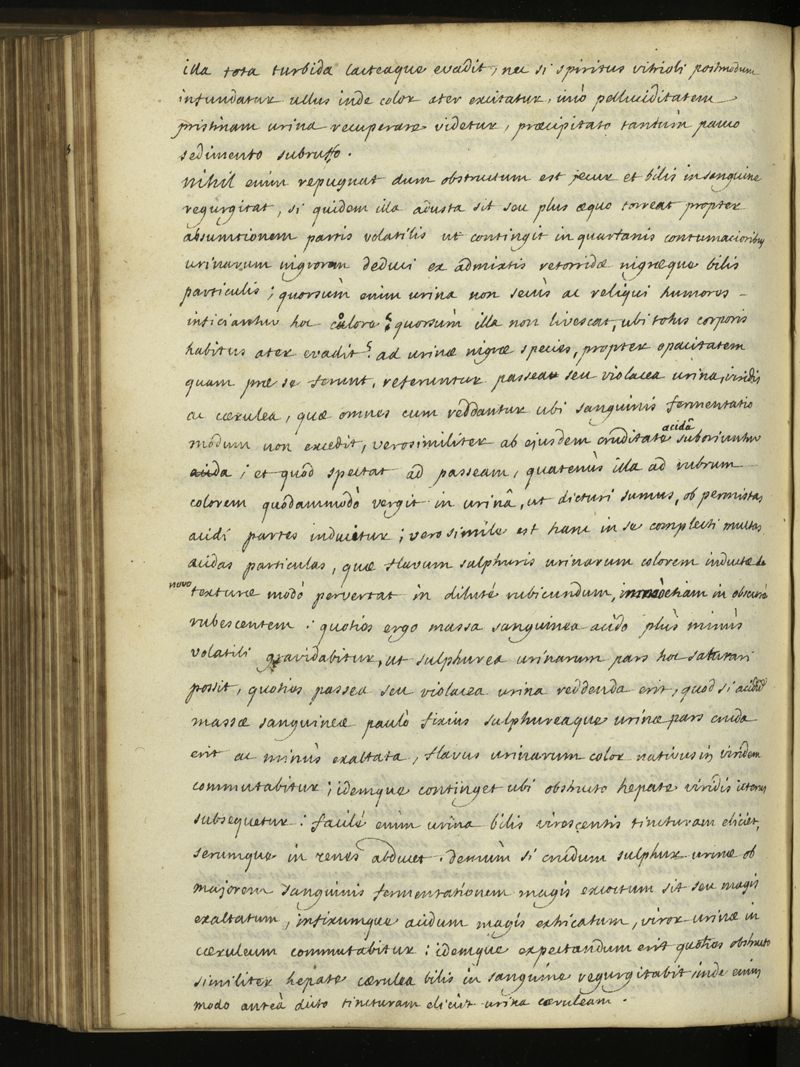 illa tota turbida lacteaque evadit, nec si spiritus vitrioli postmodum
infundatur ullus inde color ater excitatur, imò pelluciditatem
pristinam urina recuperare videtur, præcipitato tantùm pauco
sedimento subruffo.
Nihil enim repugnat dum obstructum est jecur et bilis in sanguine
regurgitat, si quidem illa adusta sit seu plus æquo torreat propter
absumtionem partis volatilis ut contingit in quartanis contumacioribus
urinarum nigrorem deduci ex admixtis retorridæ nigræque bilis
particulis; quorsùm enim urina non secùs ac reliqui humores
inficiantur hoc colore? quorsùm illa non livescat, ubi totus corporis
habitus ater evadit? ad urinæ nigræ species, propter opacitatem
quam præ se ferunt, referuntur passea seu violacea urina, viridis
ac cærulea, quæ omnes cum reddantur ubi sanguinis fermentatio
modum non excedit, verosimiliter ab ejusdem cruditate acidâ suboriuntur
; et quod spectat ad passeam, quatenùs illa ad rubrum
colorem quodammodò vergit in urinâ, ut dicturi sumus, ob permistas
acidi partes inducitur; verosimile est hanc in se complecti multas
acidas particulas, quæ flavum sulphuris urinarum colorem inductæ de
novo texturæ modò pervertat in dilutè rubicundum, etiam in obscurè
rubescentem: quoties ergo massa sanguinea acido plùs minùs
volatili gravidabitur, ut sulphurea urinarum pars hoc saturari
possit, quoties passea seu violacea urina reddenda erit, quod si acidum
massæ sanguineæ paulò fixius sulphureaque urinæ pars cruda
erit ac minùs exaltata, flavus urinarum color nativus in viridem
commutabitur; idemque continget ubi obstructo hepate viridis icterus
subsequetur: facilè enim urina bilis virescentis tincturam eliciet,
serumque in renes abducet. demùm si crudum sulphur urinæ ob
majorem sanguinis fermentationem magis excoctum sit seu magis
exaltatum, infixumque acidum magis extricatum, viror urinæ in
cæruleum commutabitur: idemque expectandum erit quoties obstructo
similiter hepate cærulea bilis in sanguine regurgitabit inde enim
modo anteà dicto tincturam eliciet urina cæruleam.